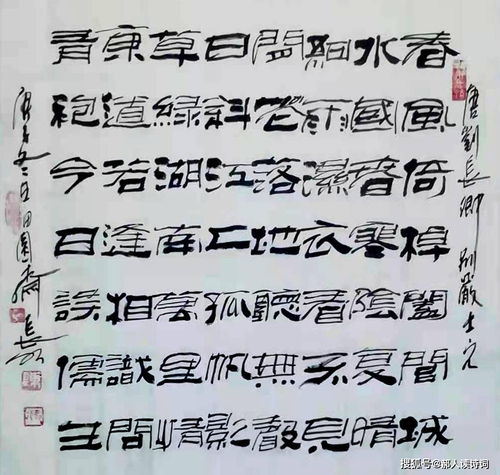 唐劉長卿別嚴士元
春風倚棹闔閭城
水國春寒陰復晴
細雨濕衣看不見
閒花落地聽無聲
日斜江上孤帆影
草綠湖南萬里情
東道若逢相識問
青袍今日誤儒生
庚子冬田園
搜狐号@鄙人读诗词